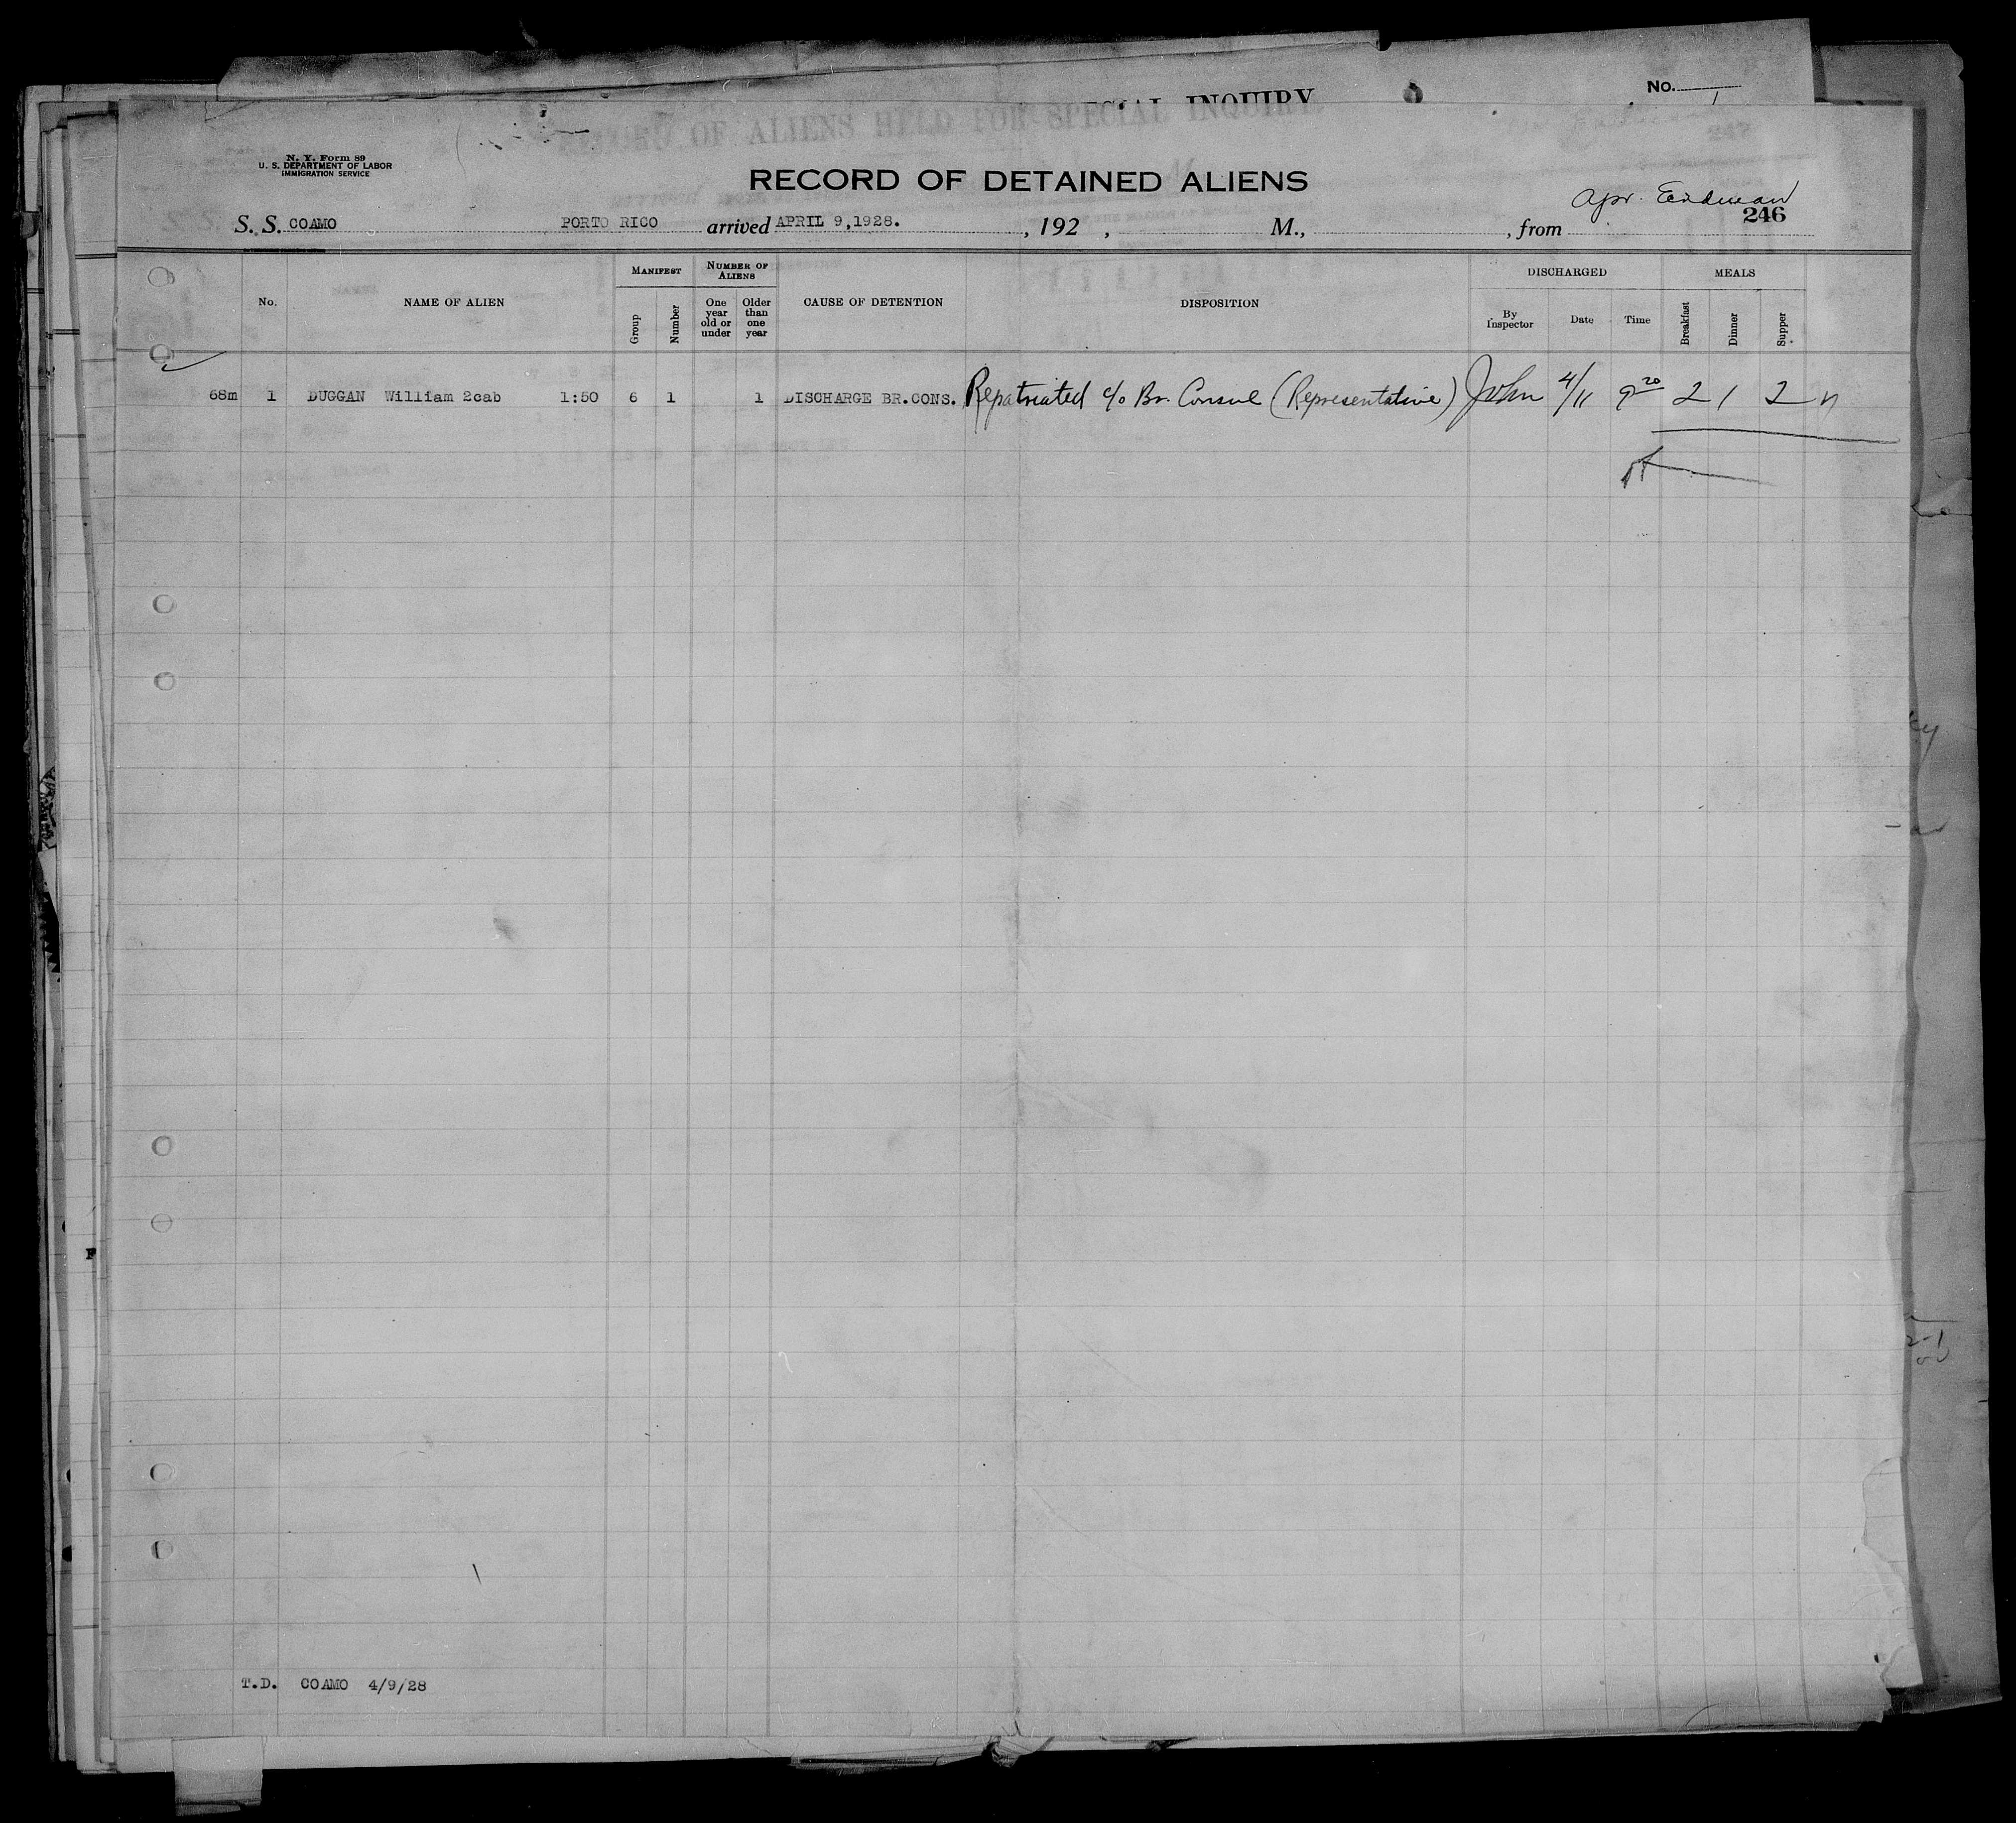 No. 1
SPECIAL INQUIRY
RECORD OF ALIENS HELD FOR SPECIAL INQUIRY
N. Y. Form 89
U. S. DEPARTMENT OF LABOR
IMMIGRATION SERVICE
RECORD OF DETAINED ALIENS
246
S. S. COAMO PORTO RICO arrived APRIL 9,1928. , 192 , M., , from
No. NAME OF ALIEN MANIFEST Group Number NUMBER OF ALIENS One year old or under Older than one year CAUSE OF DETENTION DISPOSITION DISCHARGED By Inspector Date Time MEALS Breakfast Dinner Supper
68m 1 DUGGAN William 2cab 1:50 6 1 1 DISCHARGE BR.CONS. Repatriated c/o Br. Consul (Representative) John 4/11 9 20 2 1 2 n
T.D. COAMO 4/9/28